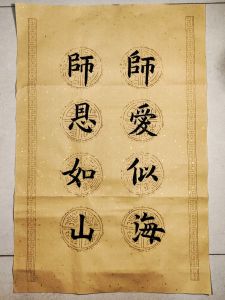 師愛似海
師恩如山